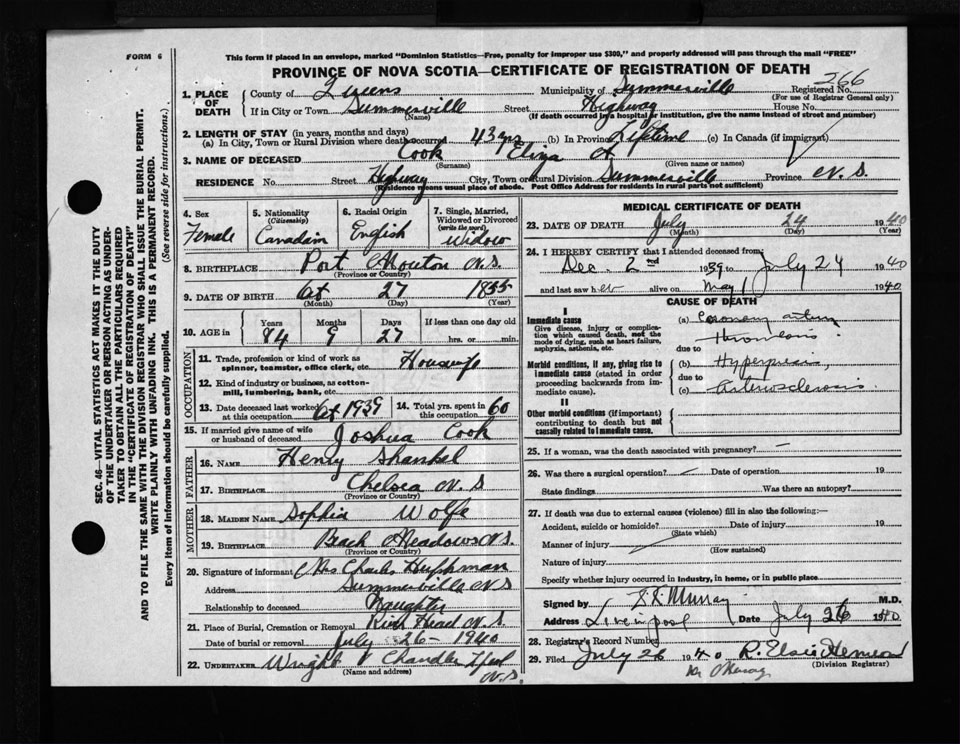 FORM 6
This form if placed in an envelope, marked "Dominion Statistics—Free, penalty for improper use $300," and properly addressed will pass through the mail "FREE"
PROVINCE OF NOVA SCOTIA—CERTIFICATE OF REGISTRATION OF DEATH
266
1. PLACE OF DEATH
County of Queens Municipality of Summerville Registered No.
(For use of Registrar General only)
If in City or Town Summerville Street Highway House No.
(Name) (If death occurred in a hospital or institution, give the name instead of street and number)
2. LENGTH OF STAY (in years, months and days)
(a) In City, Town or Rural Division where death occurred 43 yrs (b) In Province Lifetime (c) In Canada (if immigrant)
3. NAME OF DECEASED Cook
(Surname) (Given name or names)
RESIDENCE No. Street Highway City, Town or Rural Division Summerville Province N.S.
(Residence means usual place of abode. Post Office Address for residents in rural parts not sufficient)
4. Sex Female
5. Nationality (Citizenship) Canadain
6. Racial Origin English
7. Single, Married, Widowed or Divorced (write the word) Widow
8. BIRTHPLACE Port Mouton N.S.
(Province or Country)
9. DATE OF BIRTH Oct 27 1855
(Month) (Day) (Year)
10. AGE in Years Months Days If less than one day old
84 9 27 hrs. or min.
OCCUPATION
11. Trade, profession or kind of work as spinner, teamster, office clerk, etc. Housewife
12. Kind of industry or business, as cotton-mill, lumbering, bank, etc.
13. Date deceased last worked at this occupation Oct 1939
14. Total yrs. spent in this occupation 60
15. If married give name of wife or husband of deceased Joshua Cook
FATHER
16. NAME Henry Shankel
17. BIRTHPLACE Chelsea N.S
(Province or Country)
MOTHER
18. MAIDEN NAME Sophia Wolfe
19. BIRTHPLACE Beach Meadows N.S.
(Province or Country)
20. Signature of informant Mrs Charles Huphman
Address Summerville N.S
Relationship to deceased Daughter
21. Place of Burial, Cremation or Removal Head N.S.
Date of burial or removal July 26 - 1940
22. UNDERTAKER Wright Chandler Lpool N.S.
(Name and address)
MEDICAL CERTIFICATE OF DEATH
23. DATE OF DEATH July 24 1940
(Month) (Day) (Year)
24. I HEREBY CERTIFY that I attended deceased from:
Dec. 2nd 1939 to July 24 1940
and last saw her alive on May 1 1940
CAUSE OF DEATH
I
Immediate cause
Give disease, injury or complication which caused death, not the mode of dying, such as heart failure, asphyxia, asthenia, etc.
(a) Coronary artery
Thrombosis
due to
Morbid conditions, if any, giving rise to immediate cause (stated in order proceeding backwards from immediate cause).
(b)
due to
(c) arteriosclerosis
II
Other morbid conditions (if important) contributing to death but not causally related to immediate cause.
25. If a woman, was the death associated with pregnancy? —
26. Was there a surgical operation? — Date of operation 19
State findings Was there an autopsy?
27. If death was due to external causes (violence) fill in also the following:—
Accident, suicide or homicide? Date of injury 19
(State which)
Manner of injury
(How sustained)
Nature of injury
Specify whether injury occurred in industry, in home, or in public place
Signed by Murray M.D.
Address Liverpool Date July 26 1940
28. Registrar's Record Number
29. Filed July 26 1940 R. Elsie
(Division Registrar)
SEC. 46—VITAL STATISTICS ACT MAKES IT THE DUTY OF THE UNDERTAKER OR PERSON ACTING AS UNDERTAKER TO OBTAIN ALL THE PARTICULARS REQUIRED IN THE "CERTIFICATE OF REGISTRATION OF DEATH"
AND TO FILE THE SAME WITH THE DIVISION REGISTRAR WHO SHALL ISSUE THE BURIAL PERMIT.
WRITE PLAINLY WITH UNFADING INK. THIS IS A PERMANENT RECORD.
Every item of information should be carefully supplied. (See reverse side for instructions.)